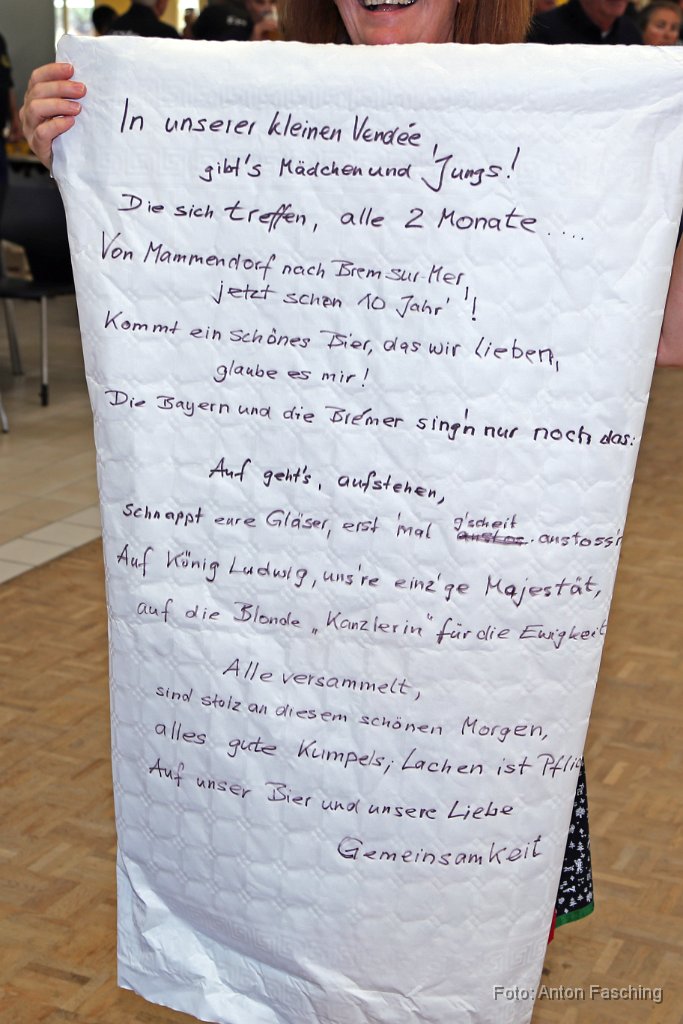 In unserer kleinen Vendée,
gibt's Mädchen und Jungs!
Die sich treffen, alle 2 Monate....
Von Mammendorf nach Brem sur Mer,
jetzt schon 10 Jahr'!
Kommt ein schönes Bier, das wir lieben,
glaube es mir!
Die Bayern und die Brémer sing'n nur noch das:
Auf geht's, aufstehen,
schnappt eure Gläser, erst 'mal g'scheit anstoss'n
Auf König Ludwig, uns're einz'ge Majestät,
auf die Blonde „Kanzlerin" für die Ewigkeit
Alle versammelt,
sind stolz an diesem schönen Morgen,
alles gute Kumpels; Lachen ist Pflic
Auf unser Bier und unsere Liebe
Gemeinsamkeit
Foto: Anton Fasching